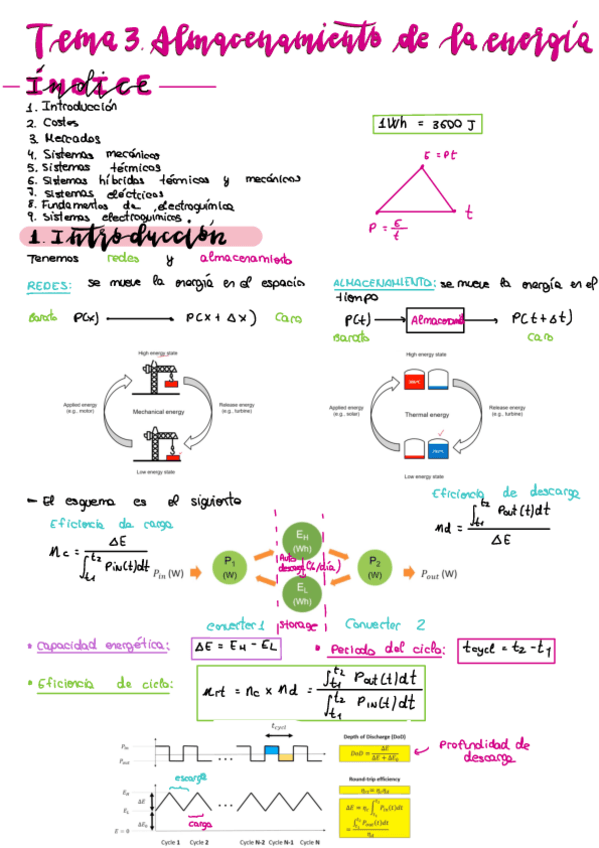 Tema 3. Almacenamiento de la energía
ÍNDICE
1. Introducción
2. Costes
3. Mercados
4. Sistemas mecánicos
5. Sistemas térmicos
6. Sistemas híbridos térmicos y mecánicos
7. Sistemas eléctricos
8. Fundamentos de electroquímica
9. Sistemas electroquímicos.
1Wh = 3600 J
E = Pt
P = E/t
t
1. Introducción
Tenemos redes y almacenamiento
REDES: se mueve la energía en el espacio
Barato P(x) → P(x + Δx) Caro
ALMACENAMIENTO: se mueve la energía en el
tiempo
P(t) → → P(t + Δt)
Barato Caro
High energy state
Applied energy
(e.g., motor)
Mechanical energy
Release energy
(e.g., turbine)
Low energy state
High energy state
Applied energy
(e.g., solar)
Thermal energy
Release energy
(e.g., turbine)
Low energy state
- El esquema es el siguiente
Eficiencia da carga
ηc = ΔE / ∫t1^t2 Pin(t)dt
Eficiencia de descarga
ηd = ∫t1^t2 Pout(t)dt / ΔE
Pin (W)
P1
(W)
EH
(Wh)
Auto
descarga (%/día)
EL
(Wh)
P2
(W)
Pout (W)
converter 1 storage Converter 2
• Capacidad energética: ΔE = EH - EL
• Periodo del ciclo: tcycl = t2 - t1
• Eficiencia de ciclo: ηrt = ηc x ηd = ∫t1^t2 Pout(t)dt / ∫t1^t2 PIN(t)dt
tcycl
Pin
Pout
Depth of Discharge (DoD)
DoD = ΔE / ΔE + ΔE0
Profundidad de
descarga
escarga
carga
EH
ΔE
EL
ΔE0
E = 0
Cycle 1 Cycle 2 ... Cycle N-2 Cycle N-1 Cycle N
Round-trip efficiency
ηrt = ηcηd
ΔE = ηc ∫t1^t2 Pin(t)dt
= ∫t1^t2 Pout(t)dt / ηd